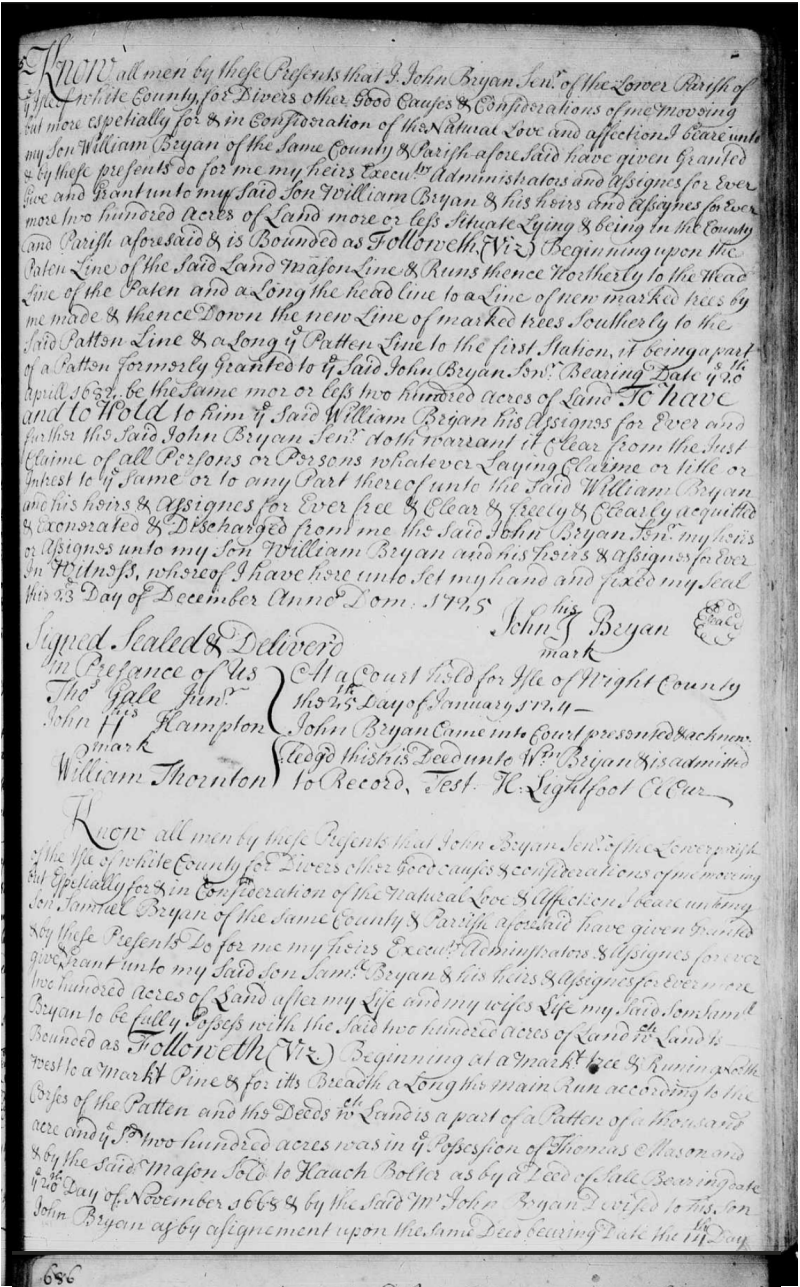 Know all men by these Presents that I John Bryan Senr. of the Lower Parish of
ye Isle of white County, for Divers other Good Causes & Considerations of me moveing
but more espetially for & in Consideration of the Natural Love and affection I beare unto
my Son William Bryan of the Same County & Parish afore Said have given Granted
& by these presents do for me my heirs Execurs Administrators and Assignes for Ever
Give and Grant unto my Said Son William Bryan & his heirs and Assignes for Ever
more two hundred Acres of Land more or less Situate Lying & being in the County
and Parish aforesaid & is Bounded as Followeth (Viz) Beginning upon the
Paten Line of the Said Land Mason Line & Runs thence Northerly to the Head
Line of the Paten and a Long the head line to a Line of new marked trees by
me made & thence Down the new Line of marked trees Southerly to the
Said Patten Line & a Long ye Patten Line to the first Station, it being a part
of a Patten formerly Granted to ye Said John Bryan Senr. Bearing Date ye 20th
Aprill 1682, be the Same mor or less two hundred acres of Land To have
and to Hold to him ye Said William Bryan his Assignes for Ever and
further the Said John Bryan Senr. doth warrant it Clear from the Just
Claime of all Persons or Persons whatever Laying Claime or title or
Intrest to ye Same or to any Part thereof unto the Said William Bryan
and his heirs & Assignes for Ever free & Clear & freely & Clearly acquitted
& Exonerated & Discharged from me the Said John Bryan Senr. my heirs
or Assignes unto my Son William Bryan and his heirs & Assignes for Ever
In Witness, whereof I have here unto Set my hand and fixed my Seal
this 23 Day of December Anno Dom: 1725
his
John J Bryan Seal
mark
Signed Sealed & Deliver'd
in Presance of Us
Thos Gale Junr.
his
John H Hampton
mark
William Thornton
At a Court held for Isle of Wight County
the 25th Day of January 1724
John Bryan Came into Court presented & acknow
ledg'd this his Deed unto Wm Bryan & is admitted
to Record, Test. H: Lightfoot Cl Cur
Know all men by these Presents that John Bryan Senr. of the Lower parish
of the Isle of white County for Divers other Good causes & considerations of me moveing
but Espetially for & in Consideration of the Natural Love & Affection I beare unto my
Son Samuel Bryan of the Same County & Parrish aforesaid have given Granted
& by these Presents Do for me my heirs Execurs Adminstrators & Assignes for ever
give, Grant unto my Said son Saml Bryan & his heirs & Assignes for Evermore
two hundred Acres of Land after my Life and my wifes Life my Said Son Samll
Bryan to be fully Possess with the Said two hundred acres of Land wch Land is
Bounded as Followeth (Viz) Beginning at a Markt tree & Runing North
west to a Markt Pine & for itts Breadth a Long the main Run according to the
Corses of the Patten and the Deeds wch Land is a part of a Patten of a thousand
acre and ye Sd two hundred acres was in ye Possession of Thomas Mason and
& by the Said Mason Sold to Hauch Bolter as by a Deed of Sale Bearing date
ye 20th Day of November 1668 & by the Said Mr John Bryan Devised to his Son
John Bryan as by asignement upon the Same Deed bearing Date the 14th Day
686